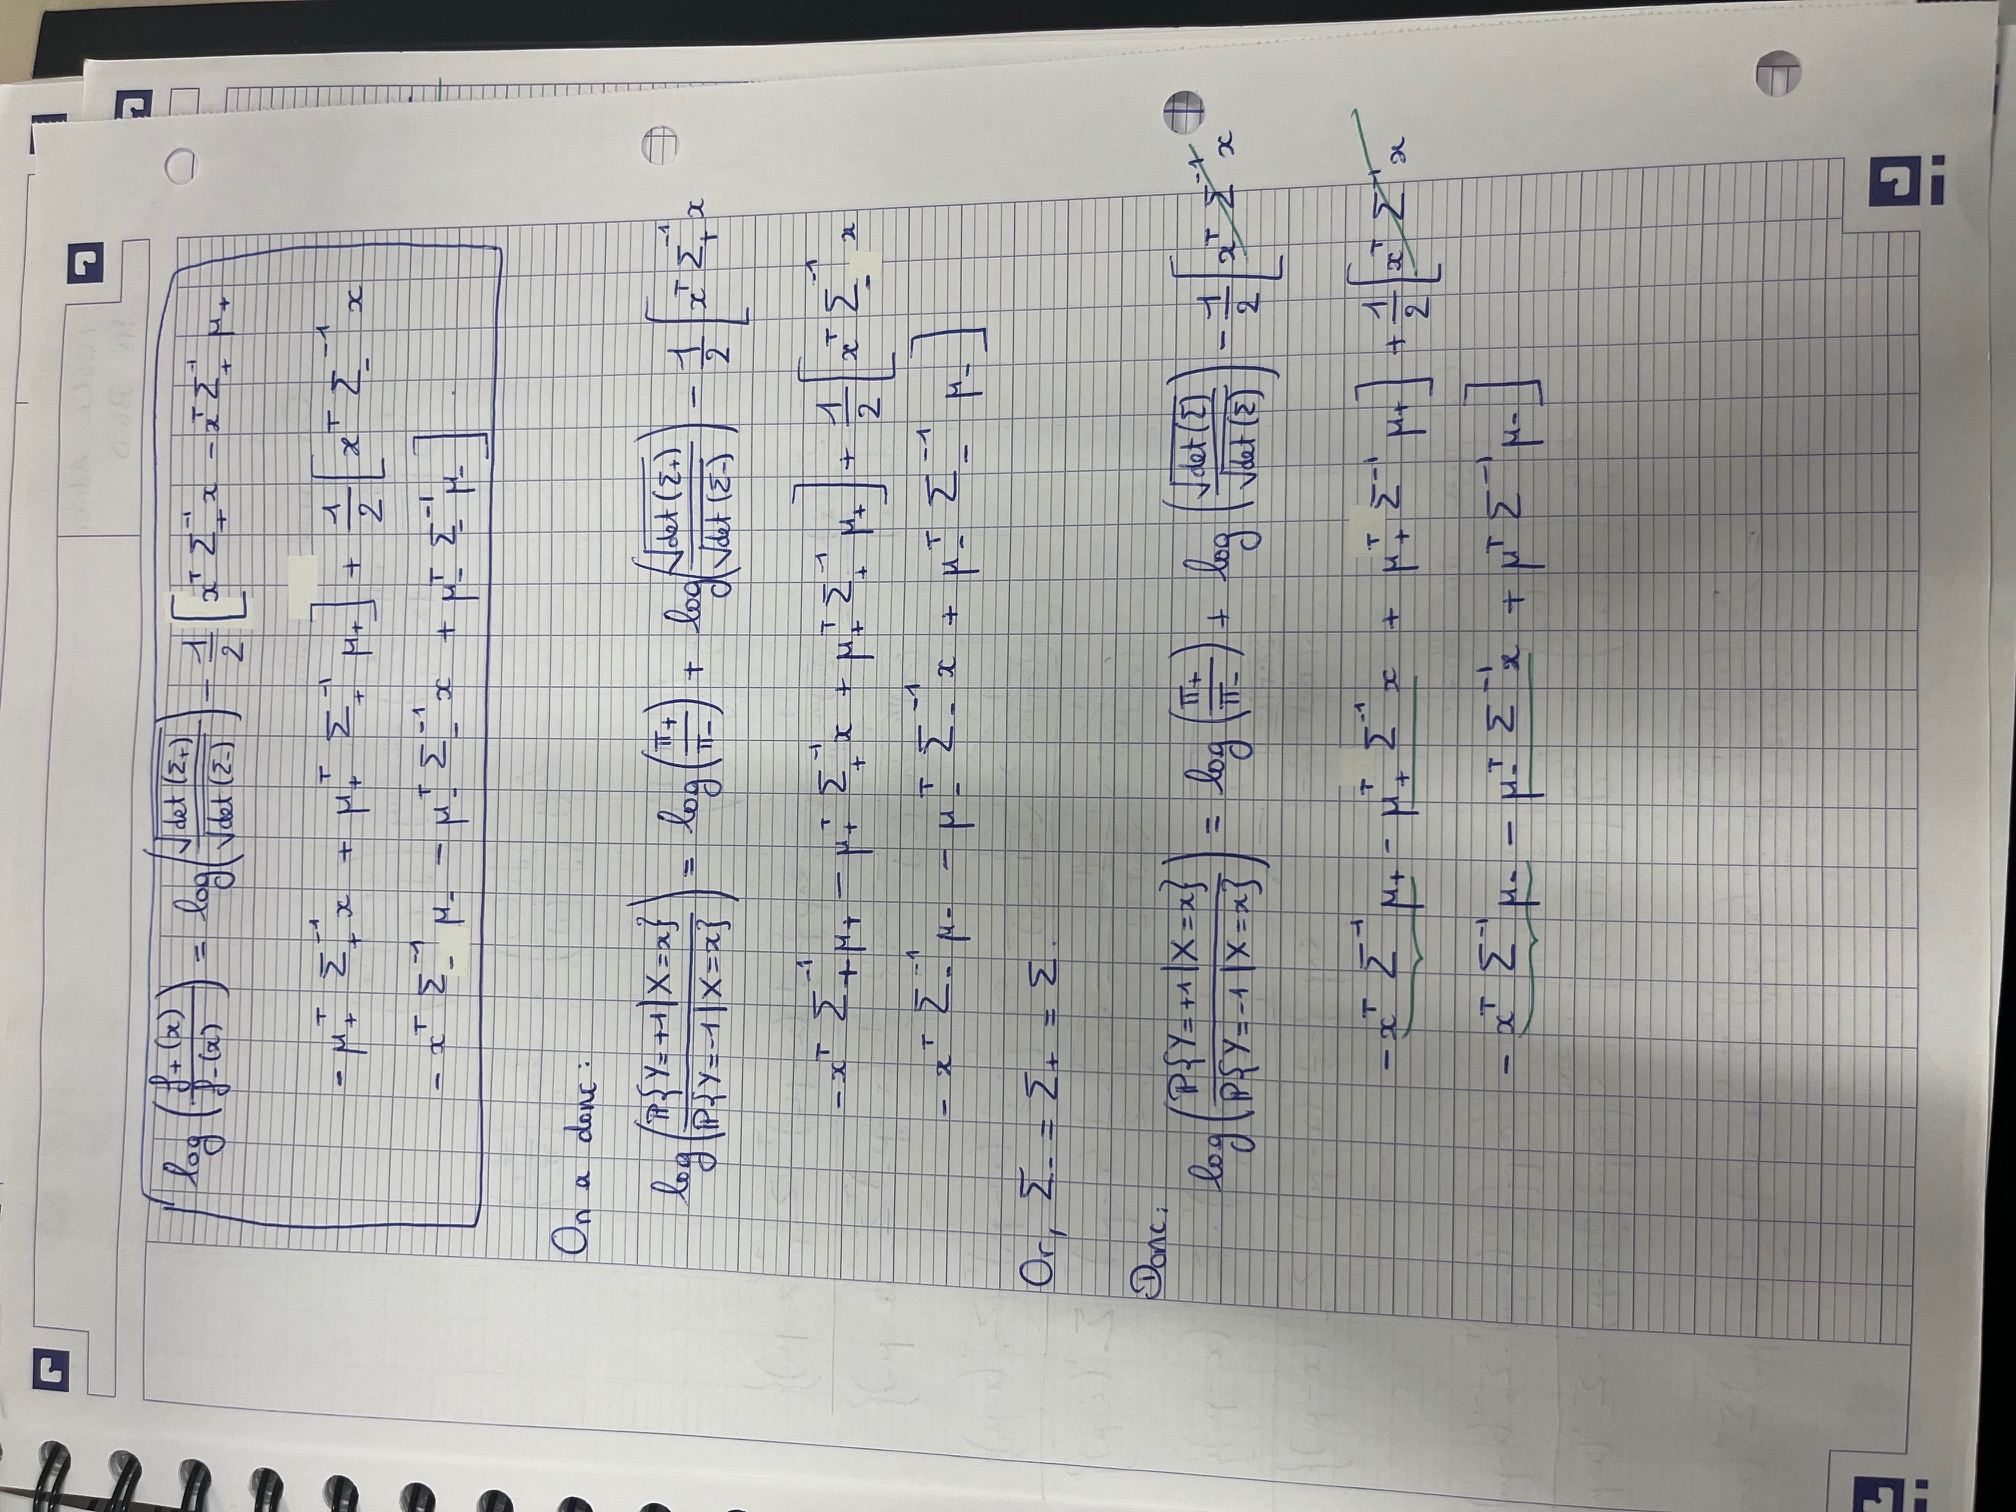 log(f+(x)/f-(x)) = log(√det(Σ+)/√det(Σ-)) - 1/2 [xᵀ Σ+⁻¹ x - xᵀ Σ+⁻¹ μ+
- μ+ᵀ Σ+⁻¹ x + μ+ᵀ Σ+⁻¹ μ+] + 1/2 [xᵀ Σ-⁻¹ x
- xᵀ Σ-⁻¹ μ- - μ-ᵀ Σ-⁻¹ x + μ-ᵀ Σ-⁻¹ μ-]
On a donc :
log(ℙ{Y=+1|X=x}/ℙ{Y=-1|X=x}) = log(π+/π-) + log(√det(Σ+)/√det(Σ-)) - 1/2 [xᵀ Σ+⁻¹ x
- xᵀ Σ+⁻¹ μ+ - μ+ᵀ Σ+⁻¹ x + μ+ᵀ Σ+⁻¹ μ+] + 1/2 [xᵀ Σ-⁻¹ x
- xᵀ Σ-⁻¹ μ- - μ-ᵀ Σ-⁻¹ x + μ-ᵀ Σ-⁻¹ μ-]
Or, Σ- = Σ+ = Σ.
Donc:
log(ℙ{Y=+1|X=x}/ℙ{Y=-1|X=x}) = log(π+/π-) + log(√det(Σ)/√det(Σ)) - 1/2 [xᵀ Σ⁻¹ x
- xᵀ Σ⁻¹ μ+ - μ+ᵀ Σ⁻¹ x + μ+ᵀ Σ⁻¹ μ+] + 1/2 [xᵀ Σ⁻¹ x
- xᵀ Σ⁻¹ μ- - μ-ᵀ Σ⁻¹ x + μᵀ Σ⁻¹ μ-]